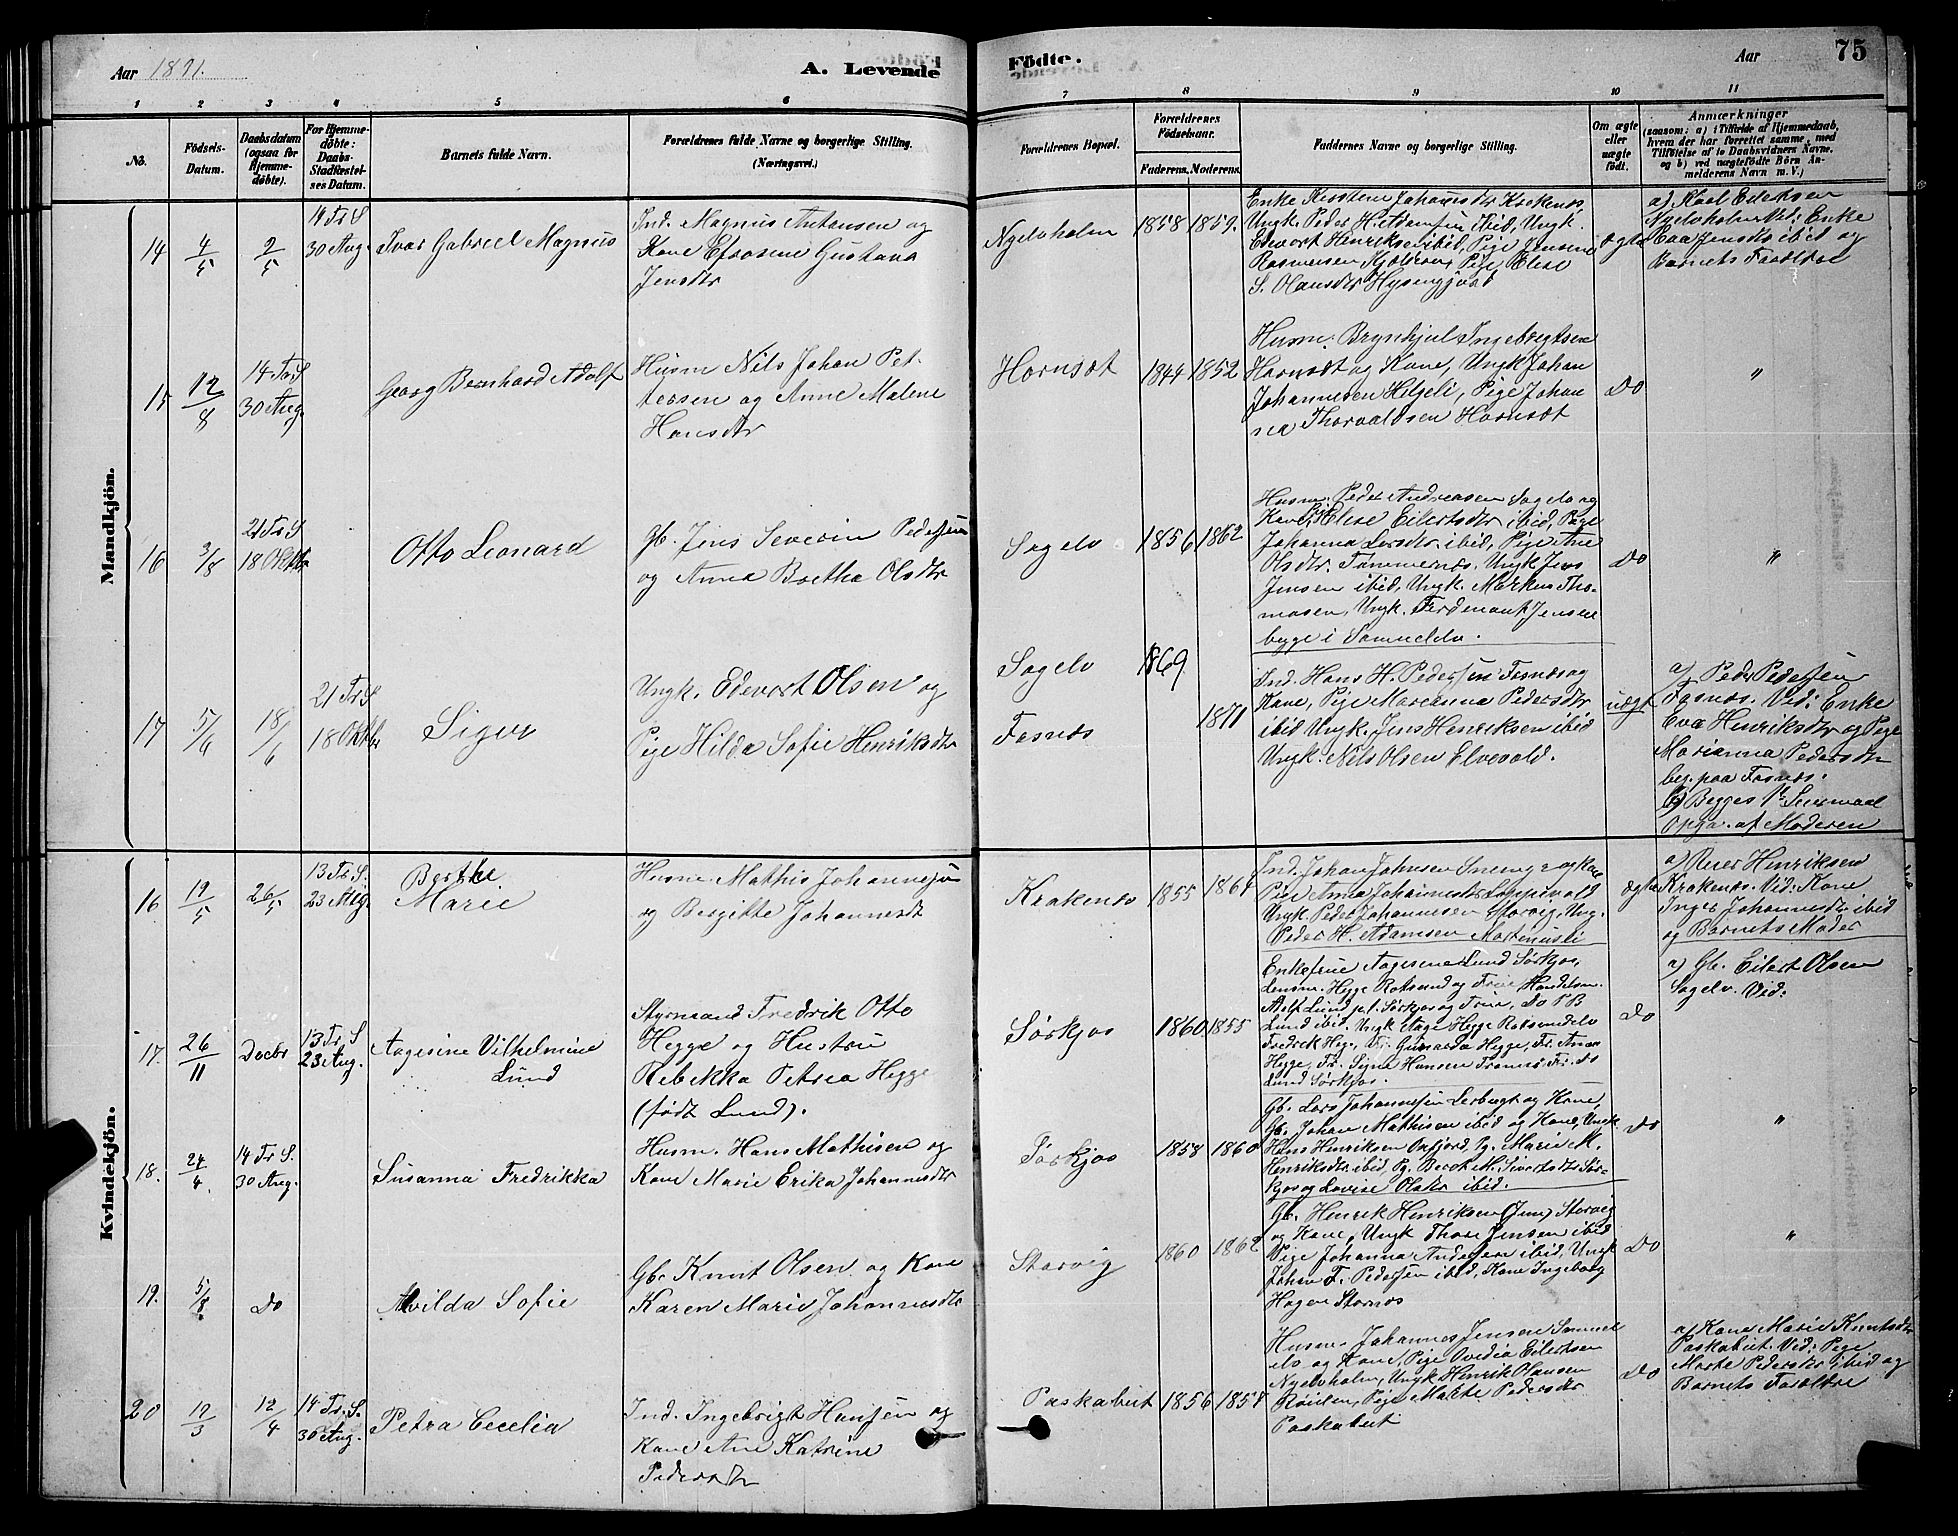 Aar 1891.
A. Levende
Födte.
Aar
75
1 2 3 4 5 6 7 8 9 10 11
No.
Födsels-
Datum.
Daabsdatum
(ogsaa for
Hjemme-
döbte).
For Hjemme-
döbte:
Daabs-
Stadfæstel-
ses Datum.
Barnets fulde Navn.
Forældrenes fulde Navne og borgerlige Stilling.
(Næringsvei.)
Forældrenes Bopæl.
Forældrenes
Födselsaar.
Faderens. Moderens.
Faddernes Navne og borgerlige Stilling.
Om ægte
eller
uægte
født.
Anmærkninger
(saasom: a) i Tilfælde af Hjemmedaab,
hvem der har forrettet samme, med
Tilföielse af to Daabsvidners Navne,
og b) ved uægtefödte Börn An-
melderens Navn m. V.)
Mandkjön.
14
4/5
2/5
30 Aug.
Ivar Gabriel Magnus
Ind. Magnus Antonsen og
Kone Efrosene Gustava
Jensdtr
Nyelvholm
1858 1859.
Enke Kirstine Johansdtr Krokenes,
Ungk. Peder H. Adamsen ibid, Ungk.
Edevart Henriksen ibid, Pige Jensine
Rasmussen, Pige Elise
S. Olausdtr
ægte
a) Karl Eilertsen
Nyelvholm Vid: Enke
Eva Jensdtr ibid og
Barnets Forældre
15
12/8
14 Tr. S
30 Aug.
Georg Bernhard Adolf
Husm Nils Johan Pet-
tersen og Anne Malene
Hansdtr
Hornsæt
1844 1852
Husm. Brynhjul Ingebrigtsen
Hornsæt og Kone, Ungk Johan
Johannesen Hilseli, Pige Johan
na Thorvaldsen Hornsæt
Do
"
16
3/8
21 Tr. S
18 Oktbr
Otto Leonard
Gb. Jens Severin Pedersen
og Anna Bertha Olsdtr
Sagelv
1856 1862
Husm. Peder Andreasen Sagelv og
Kone, Elise Eilertsdtr ibid, Pige
Johanna Larsdtr. ibid, Pige Ane
Olsdtr. Tømmernes, Ungk Jens
Jensen ibid, Ungk. Markus Tho-
masen, Ungk. Ferdinant Jensen
begge i Samuelelv.
Do
"
17
5/6
18/6
21 Tr. S
18 Oktbr
Sigur
Ungk. Edevart Olsen og
Pige Hilda Sofie Henriksdtr
Sagelv
Fosnæs
1869
1871
Ind. Hans H. Pedersen Fosnæs og
Kone, Pige Marianna Pedersdtr
ibid Ungk. Jens Henriksen ibid
Ungk. Nils Olsen Elvevold.
uægt
a) Peder Pedersen
Fosnæs. Vid: Enke
Eva Henriksdtr og Pige
Marianna Pedersdtr
beg. paa Fosnæs.
b) Begges 1ste Leiermaal
Opga. af Moderen
Kvindekjön.
16
19/5
26/5
13 Tr. S.
23 Aug.
Berthe
Marie
Husm. Mathis Johannesen
og Birgitte Johannesdt
Krakenæs
1855 1864
Ind. Johan Johnsen og Kone
Pige Anna Johannesdtr
Ungk. Peder Johannesen Storvig, Ung.
Peder H. Adamsen Martinusli
ægte
a) Reier Henriksen
Krakenæs. Vid: Kone
Inger Johannesdtr ibid
og Barnets Moder
17.
26/11
Decbr
13 Tr. S
23 Aug.
Aagesine Vilhelmine
Lund
Styrmand Fredrik Otto
Hegge og Hustru
Rebekka Petrea Hegge
(født Lund).
Sørkjos
1860. 1855
Enkefrue Aagesene Lund Sørkjos,
Lensm. Hegge Rotsund og Frue Handelsm.
Adolf Lund Sørkjos og Frue, Do P B
Lund ibid. Ungk Aage Hegge
Fredrik Heg., Fr. Gunarda Hegge, Fr. Anna
Hegge, Fr. Signe Hansen Tromsø Fr. do
Lund Sørkjos.
Do
a) Gb. Eilert Olsen
Sagelv. Vid:
18.
24/4.
14 Tr S.
30 Aug.
Susanna Fredrikka
Husm. Hans Mathisen og
Kone Marie Erika Johannesdtr
Sørkjos
1858 1860
Gb. Lars Johannesen og Kone,
Gb. Johan Mathisen ibid og Kone, Ungk
Hans Henriksen Oxfjord, Pg. Marie M.
Henriksdtr ibid, Pg. Berit M. Sivertsdtr Sør-
kjos og Lovise Olsdtr ibid.
Do
"
19.
5/8
Do
Alvilda Sofie
Gb. Knut Olsen og Kone
Karen Marie Johannesdtr
Storvig
1860 1862
Gb. Henrik Henriksen Storvig
og Kone, Ungk Thore Jensen ibid
Pige Johanna Andersen ibid, Ungk
Johan F. Pedersen ibid, Kone Ingeborg
Hagen Stornæs
Do
"
20
12/3
12/4
14 Tr. S.
30 Aug.
Petra Cecelia
Ind. Ingebrigt Hansen og
Kone Ane Katrine
Pedersdtr
Paskabut
1856 1858
Husm. Johannes Jensen Samuel
elv og Kone, Pige Ovedia Eilertsen
Nyelvholm, Ungk Henrik Olausen
Röielen, Pige Marte Pedersdtr
Paskabut
Do
a) Kone Marie Knutsdtr
Paskabut. Vid: Pige
Marte Pedersdtr ibid og
Barnets Forældre